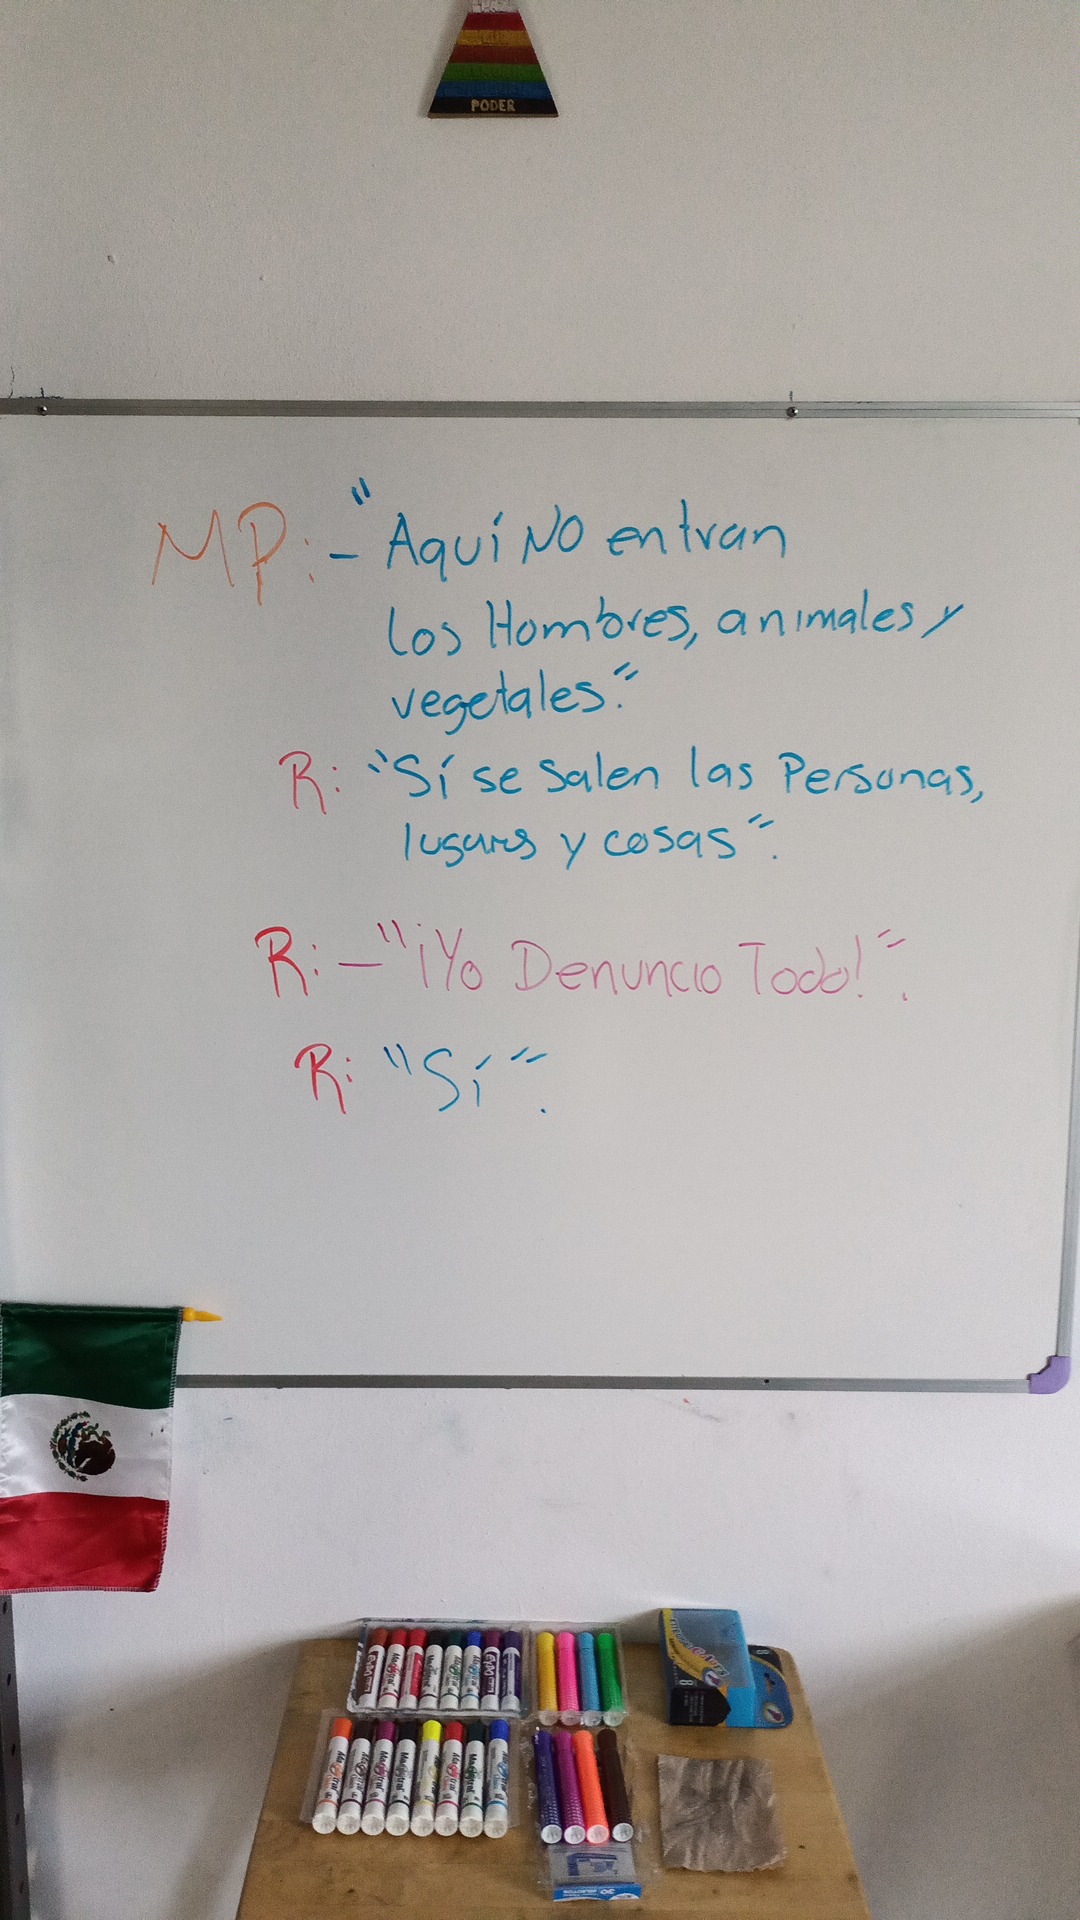 PODER
MP:- "Aquí NO entran
los Hombres, animales y
vegetales."
R: "Sí se salen las Personas,
lugares y cosas".
R:- "¡Yo Denuncio Todo!".
R: "Sí".
Magistral
Magistral
Magistral